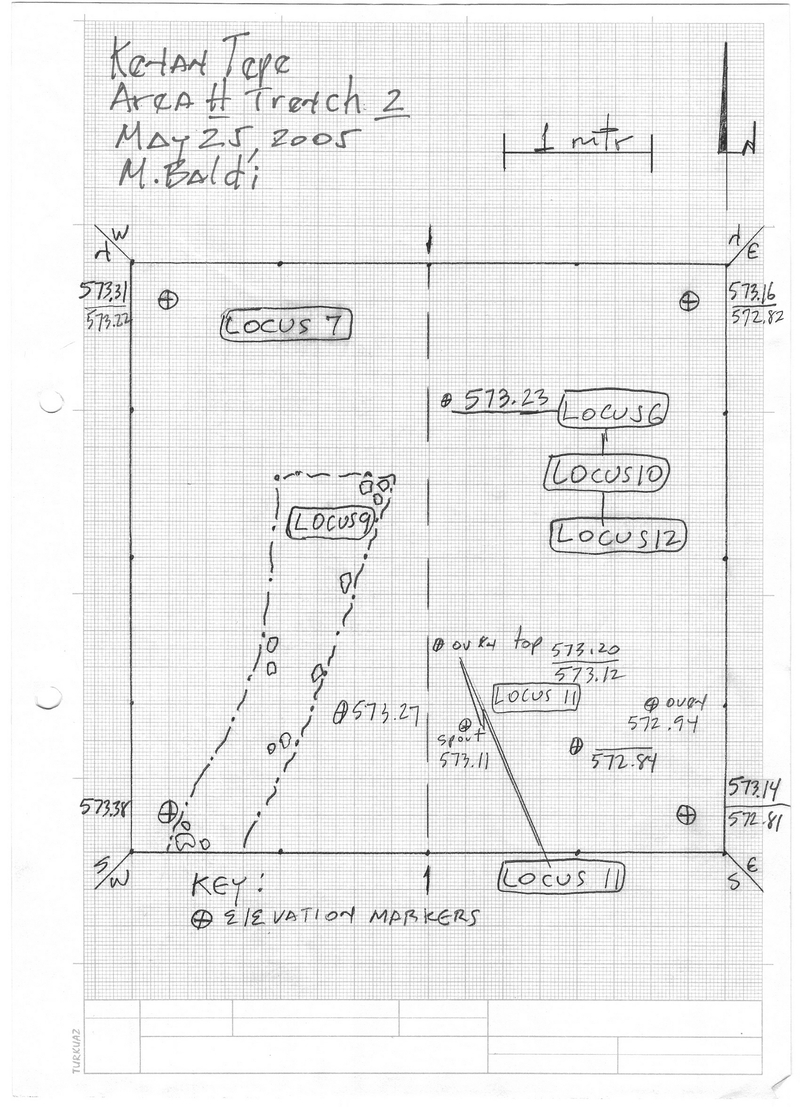 Kenan Tepe
Area H Trench 2
May 25, 2005
M. Baldi
1 mtr
N
N W
N E
573.31
573.22
LOCUS 7
573.16
572.82
573.23 LOCUS 6
LOCUS 10
LOCUS 12
LOCUS 9
oven top 573.20
573.12
LOCUS 11
oven
572.94
573.27
spout
573.11
572.84
573.38
573.14
572.81
S W
S E
LOCUS 11
KEY:
ELEVATION MARKERS
TURKUAZ